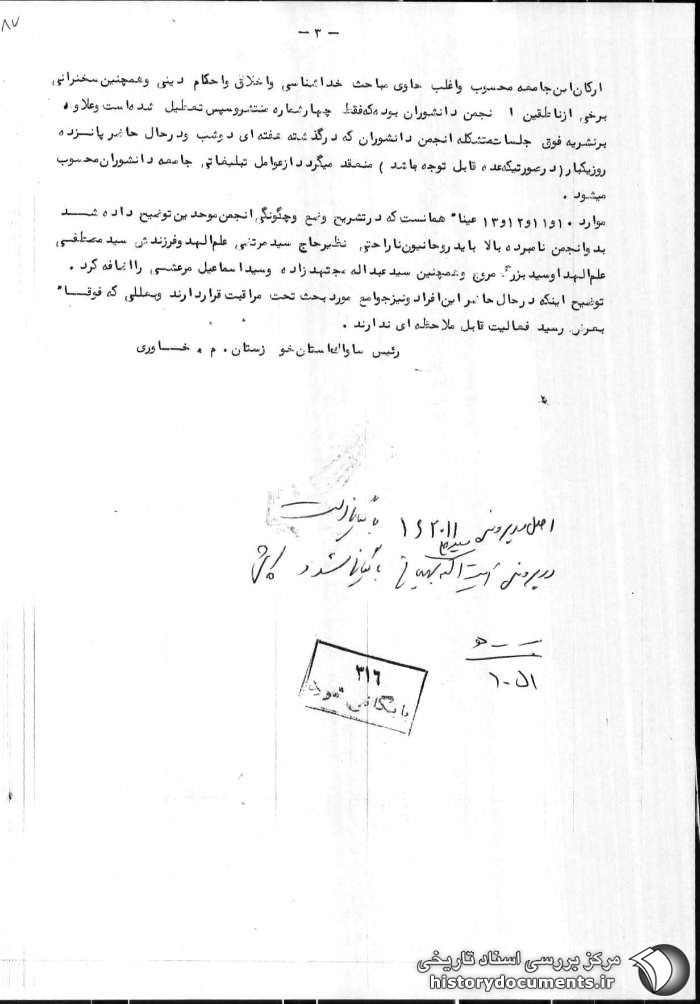 ۸۷
— ۳ —
ارکان این جامعه محسوب واغلب حاوی مباحث خداشناسی واخلاق واحکام دینی وهمچنین سخنرانی
برخی ازناطقین انجمن دانشوران بوده که فقط چهارشماره منتشروسپس تعطیل شده است وعلاوه
برنشریه فوق جلسات متشکله انجمن دانشوران که درگذشته هفته ای دوشب ودرحال حاضر پانزده
روزیکبار(درصورتیکه عده قابل توجه باشد) منعقد میگردد ازعوامل تبلیغاتی جامعه دانشوران محسوب
میشود .
موارد ۱۰و۱۱و۱۲و۱۳ عیناً همانست که درتشریح وضع وچگونگی انجمن موحدین توضیح داده شد
بدوانجمن نامبرده بالا باید روحانیون ناراحتی نظیرحاج سید مرتضی علم الهدی وفرزندش سید مصطفی
علم الهدا وسید بزرگ مروج وهمچنین سید عبداله مجتهد زاده وسید اسماعیل مرعشی رااضافه کرد .
توضیح اینکه درحال حاضر این افراد ونیزجوامع موردبحث تحت مراقبت قراردارند وبعللی که فوقاً
بعرض رسید فعالیت قابل ملاحظه ای ندارند .
رئیس ساواک استان خوزستان . م . خساوری
اصل در پرونده ۱۶۲۰۱۱ بایگانی است
در پرونده بایگانی شود
۱۰۵۱
۳۱۶
بایگانی
مرکز بررسی اسناد تاریخی
historydocuments.ir